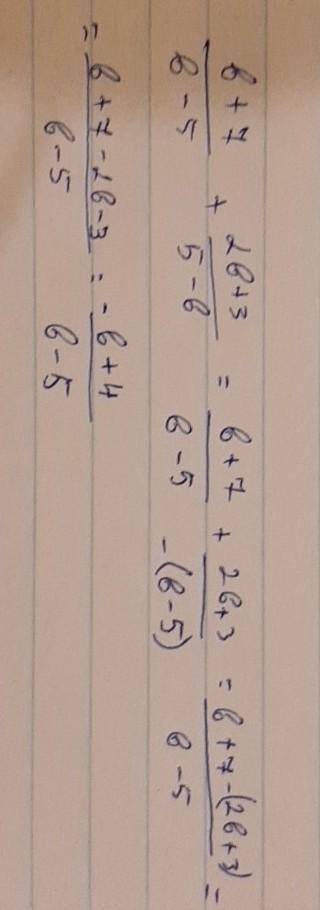 (b + 7)/(b - 5) + (2b+3)/(5 - b) = (b + 7)/(b - 5) + (2b+3)/(-(b-5)) = (b+7-(2b+3))/(b-5) =
= (b+7-2b-3)/(b-5) = (-b+4)/(b-5)